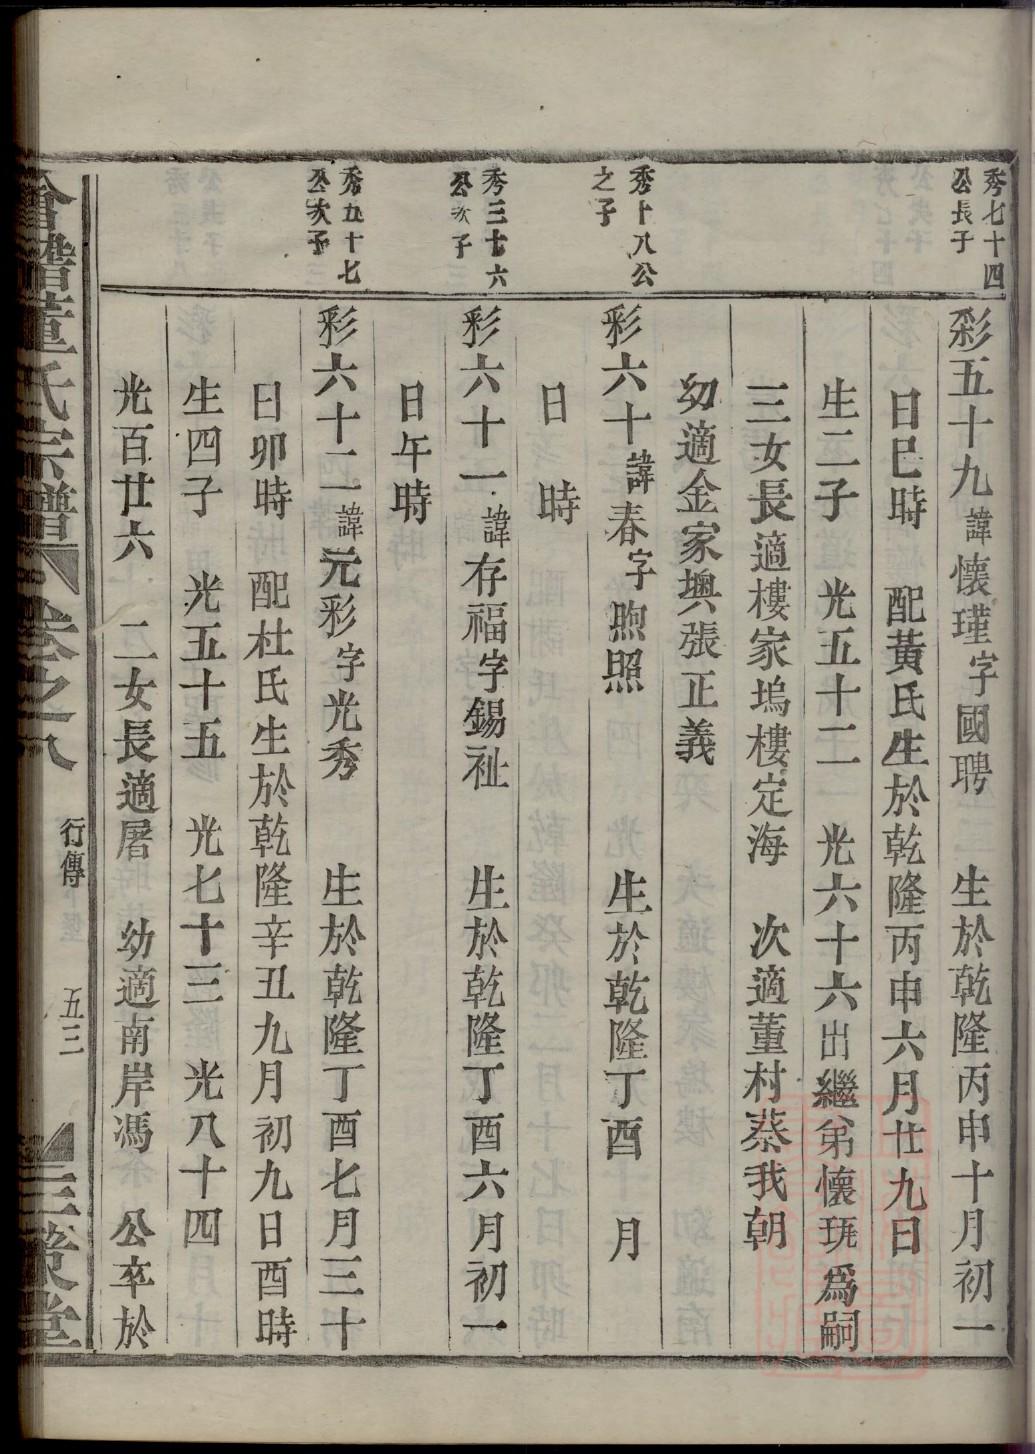 秀七十四
公長子
彩五十九諱懷瑾字國聘　生於乾隆丙申十月初一
日巳時　配黃氏生於乾隆丙申六月廿九日
生二子　光五十二　光六十六出繼弟懷珗爲嗣
三女長適樓家塢樓定海　次適董村蔡我朝
幼適金家㙪張正義
秀十八公
之子
彩六十諱春字煦照　生於乾隆丁酉　月
日　時
秀三十六
公次子
彩六十一諱存福字錫祉　生於乾隆丁酉六月初一
日午時
秀五十七
公次子
彩六十二諱元彩字光秀　生於乾隆丁酉七月三十
日卯時　配杜氏生於乾隆辛丑九月初九日酉時
生四子　光五十五　光七十三　光八十四
光百廿六　二女長適屠　幼適南岸馮　公卒於
會稽董氏宗譜　卷之八　行傳　五三　三策堂